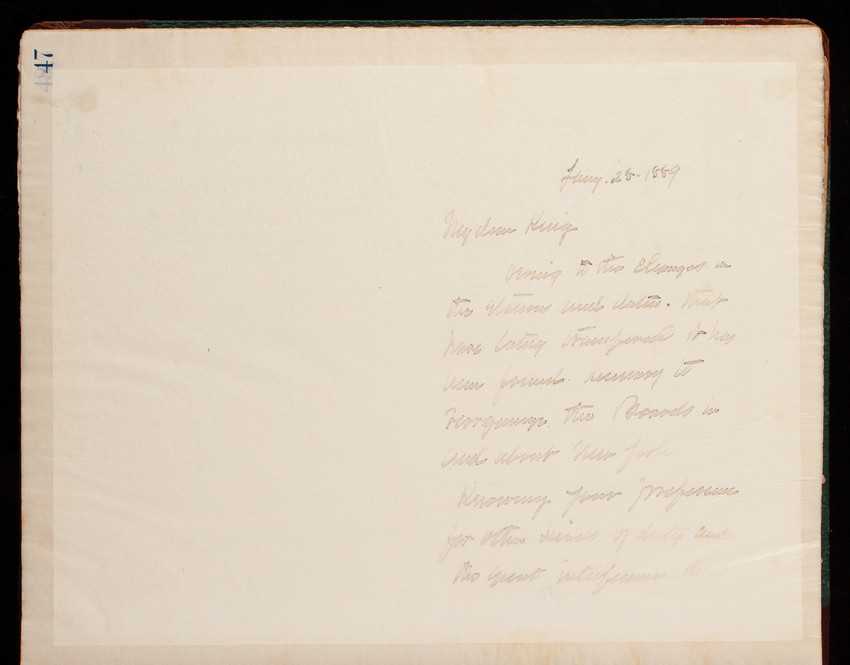 47
Jany. 28. 1889
My dear King
Owing to the changes in
the stations and duties that
have lately transpired it has
been found necessary to
reorganize the Boards in
and about New York
Knowing your preference
for other kinds of duty and
the great interference